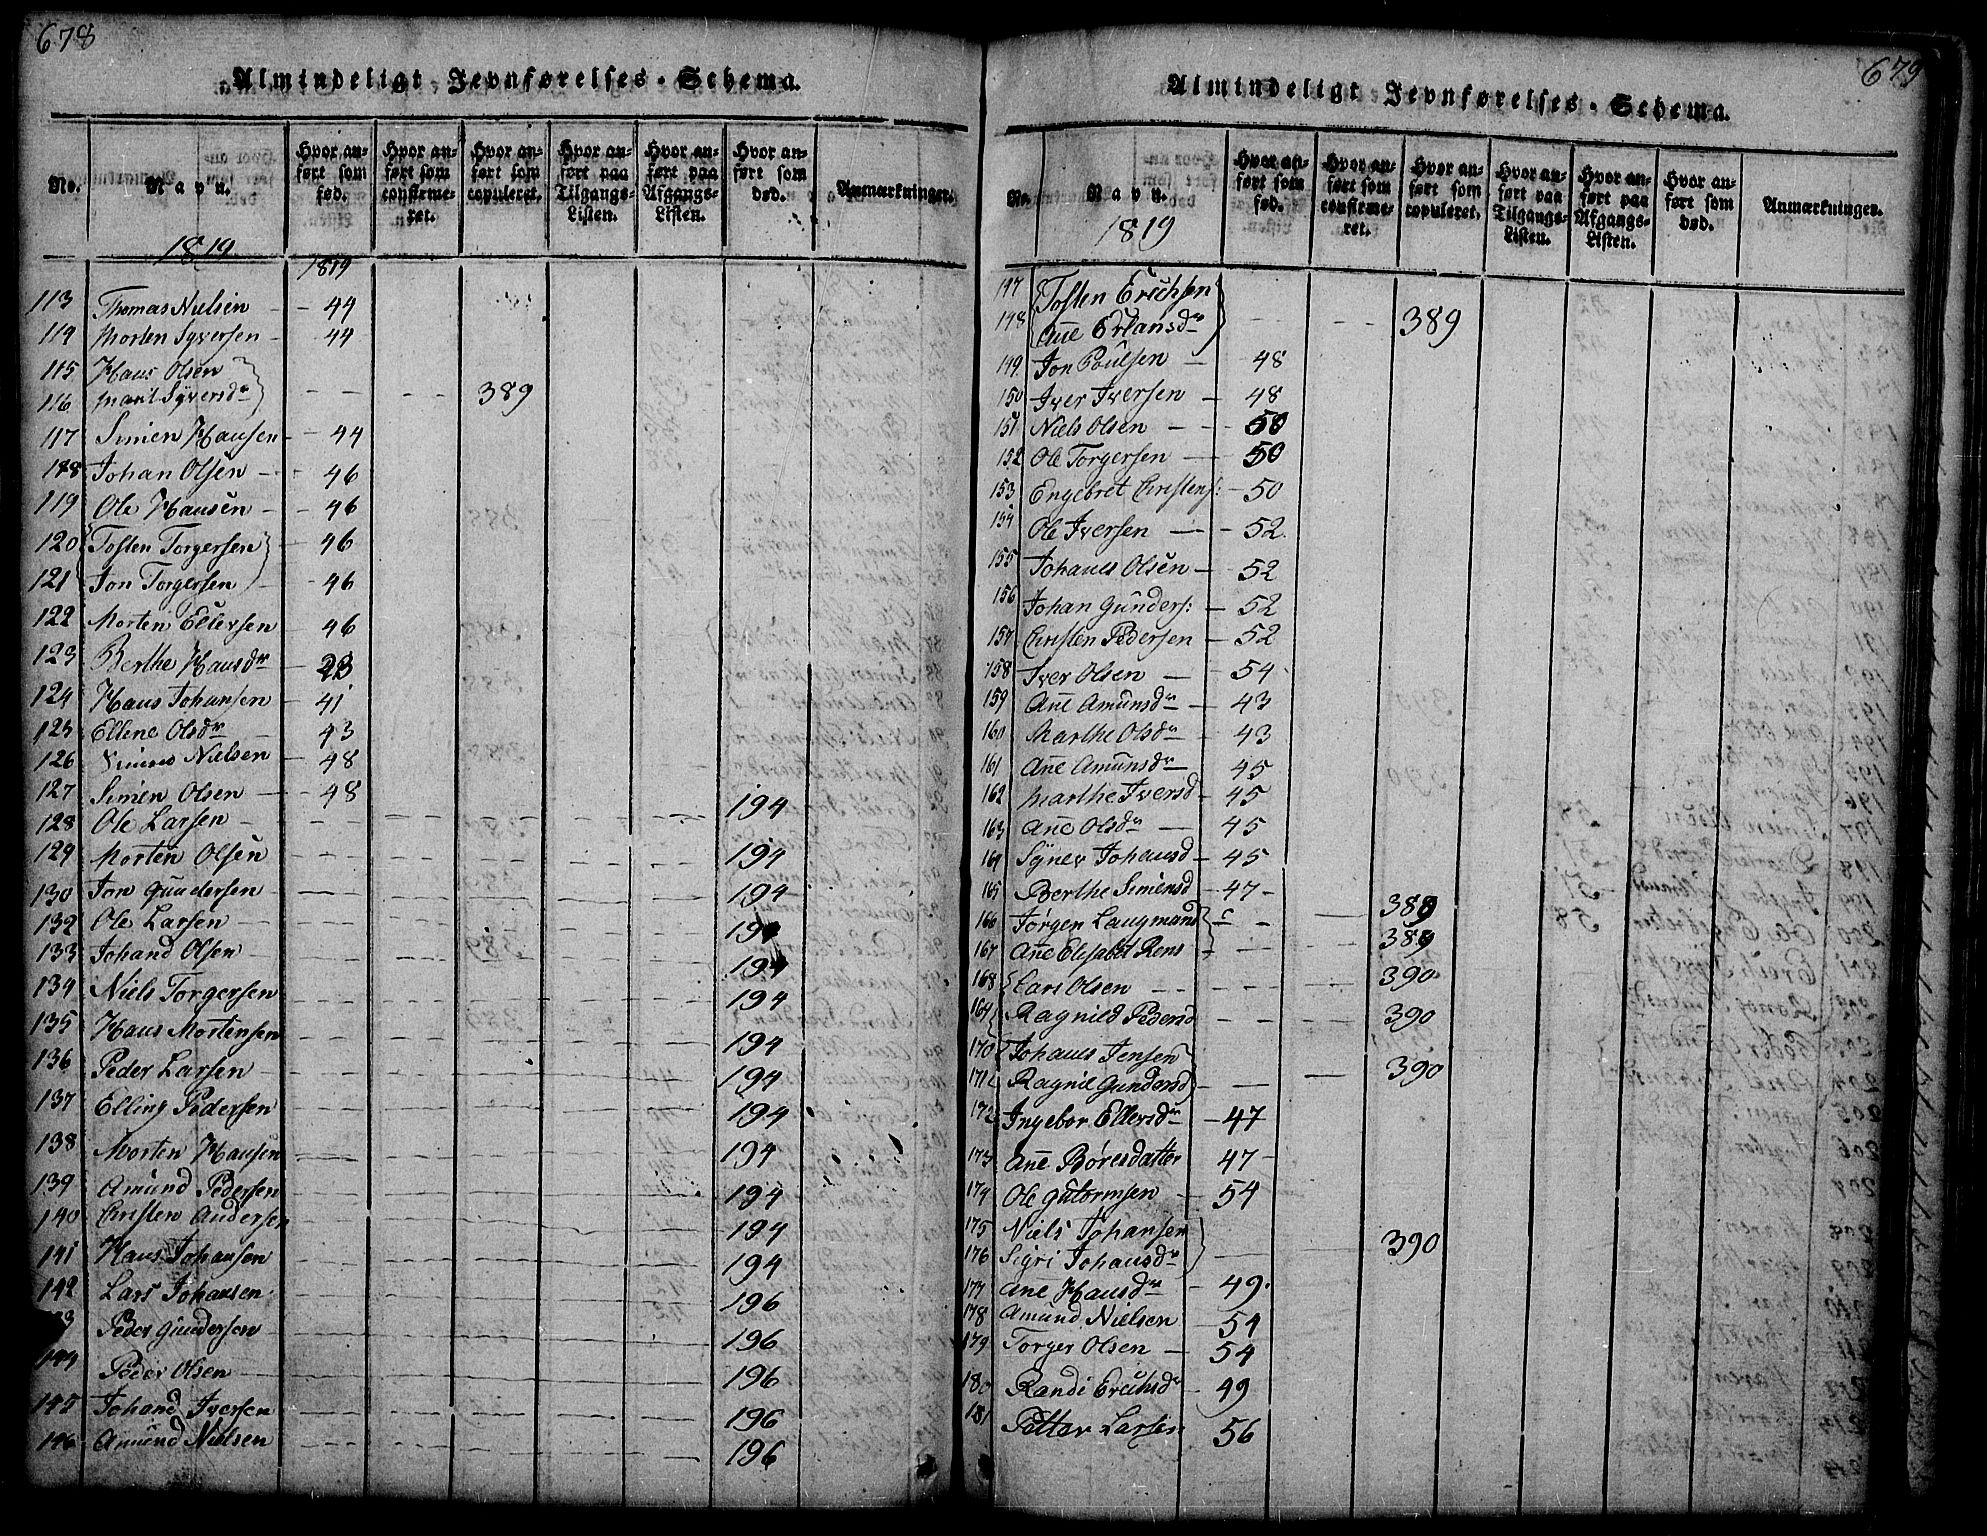 678
Almindeligt Jevnførelses-Schema.
No.
Navn.
Hvor an-
ført som
fød.
Hvor an-
ført som
confirme-
ret.
Hvor an-
ført som
copuleret.
Hvor an-
ført paa
Tilgangs-
Listen.
Hvor an-
ført paa
Afgangs-
Listen.
Hvor an-
ført som
død.
Anmærkninger.
1819 1819
113 Thomas Nielsen - - 44
114 Morten Syversen - 44
115 Hans Olsen
116 Marit Syversdr - - - - 389
117 Simen Hansen - - 44
118 Johan Olsen - - 46
119 Ole Hansen - - 46
120 Tosten Torgersen - 46
121 Jon Torgersen - 46
122 Morten Ellersen 46
123 Berthe Hansdr - 23
124 Hans Johansen - 41
125 Ellene Olsdr - 43
126 Nielsen - - 48
127 Simen Olsen - - 48
128 Ole Larsen - 194
129 Morten Olsen 194
130 Jon Gundersen - 194
132 Ole Larsen - 194
133 Johand Olsen - 194
134 Niels Torgersen 194
135 Hans Mortensen 194
136 Peder Larsen - 194
137 Elling Pedersen 194
138 Morten Hansen 194
139 Amund Pedersen 194
140 Cristen Andersen 194
141 Hans Johansen 194
142 Lars Johansen 196
3 Peder Gundersen 196
144 Peder Olsen - 196
145 Johand Iversen 196
146 Amund Nielsen 196
679
Almindeligt Jevnførelses-Schema.
No.
Navn.
Hvor an-
ført som
fød.
Hvor an-
ført som
confirme-
ret.
Hvor an-
ført som
copuleret.
Hvor an-
ført paa
Tilgangs-
Listen.
Hvor an-
ført paa
Afgangs-
Listen.
Hvor an-
ført som
død.
Anmærkninger.
1819
147 Tosten Erichsen
148 Ane Erlansdr - - - 389
149 Jon Poulsen - 48
150 Iver Iversen - 48
151 Niels Olsen - - 50
152 Ole Torgersen - 50
153 Engebret Cristens: - 50
154 Ole Iversen - - 52
155 Johanes Olsen - 52
156 Johan Gunders: - 52
157 Cristen Pedersen - 52
158 Iver Olsen - - 54
159 Ane Amunsdr - 43
160 Marthe Olsdr - 43
161 Ane Amunsdr - 45
162 Marthe Iversd - 45
163 Ane Olsdr - 45
164 Syner Johansd - 45
165 Berthe Simensd - 47 -
166 Jørgen Laugmand - - - 389
167 Ane Elisabet Rens - - - 389
168 Lars Olsen - - - - 390
169 Ragnild Pedersd - - - 390
170 Johanes Jensen
171 Ragnil Gundersd - - - 390
172 Ingebor Ellersdr - 47
173 Ane Børesdatter 47 -
174 Ole Gutormsen - 54
175 Niels Johansen
176 Sigri Johansdr - - - 390
177 Ane Hansdr - 49.
178 Amund Nielsen 54
179 Torger Olsen - 54
180 Randi Erichsdr - 49
181 Petter Larsen 56